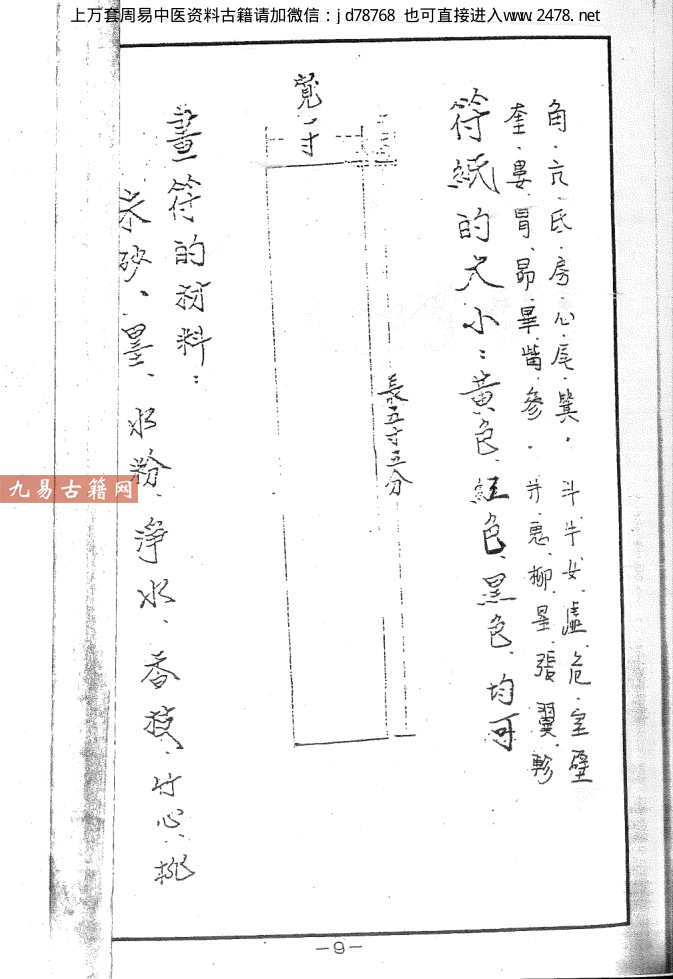 上万套周易中医资料古籍请加微信：jd78768 也可直接进入www.2478.net
角．亢．氐．房．心．尾．箕．斗．牛．女．虛．危．室．壁
奎．婁．胃．昴．畢．觜．參．井．鬼．柳．星．張．翼．軫
符紙的大小：黃色．紅色．黑色．均可
長五寸五分
寬一寸
畫符的材料：
朱砂、墨、水粉、淨水、香枝、竹心、桃
九易古籍网
－9－